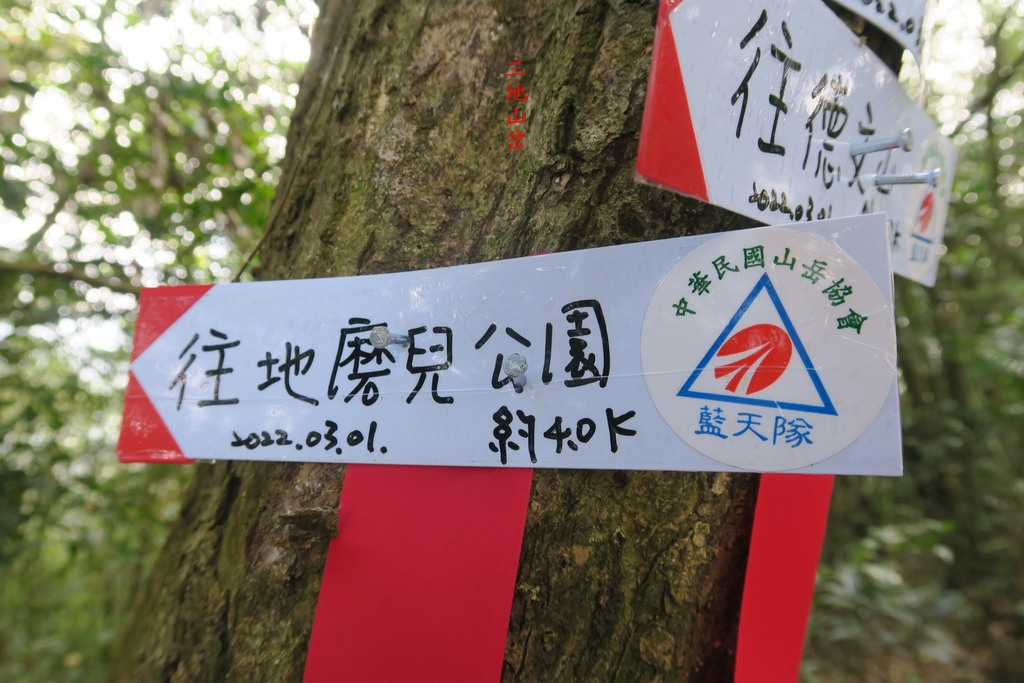 三地山岔
2022.0
往德文
2022.03.01.
往地磨兒公園
2022.03.01.
約4.0K
中華民國山岳協會
藍天隊